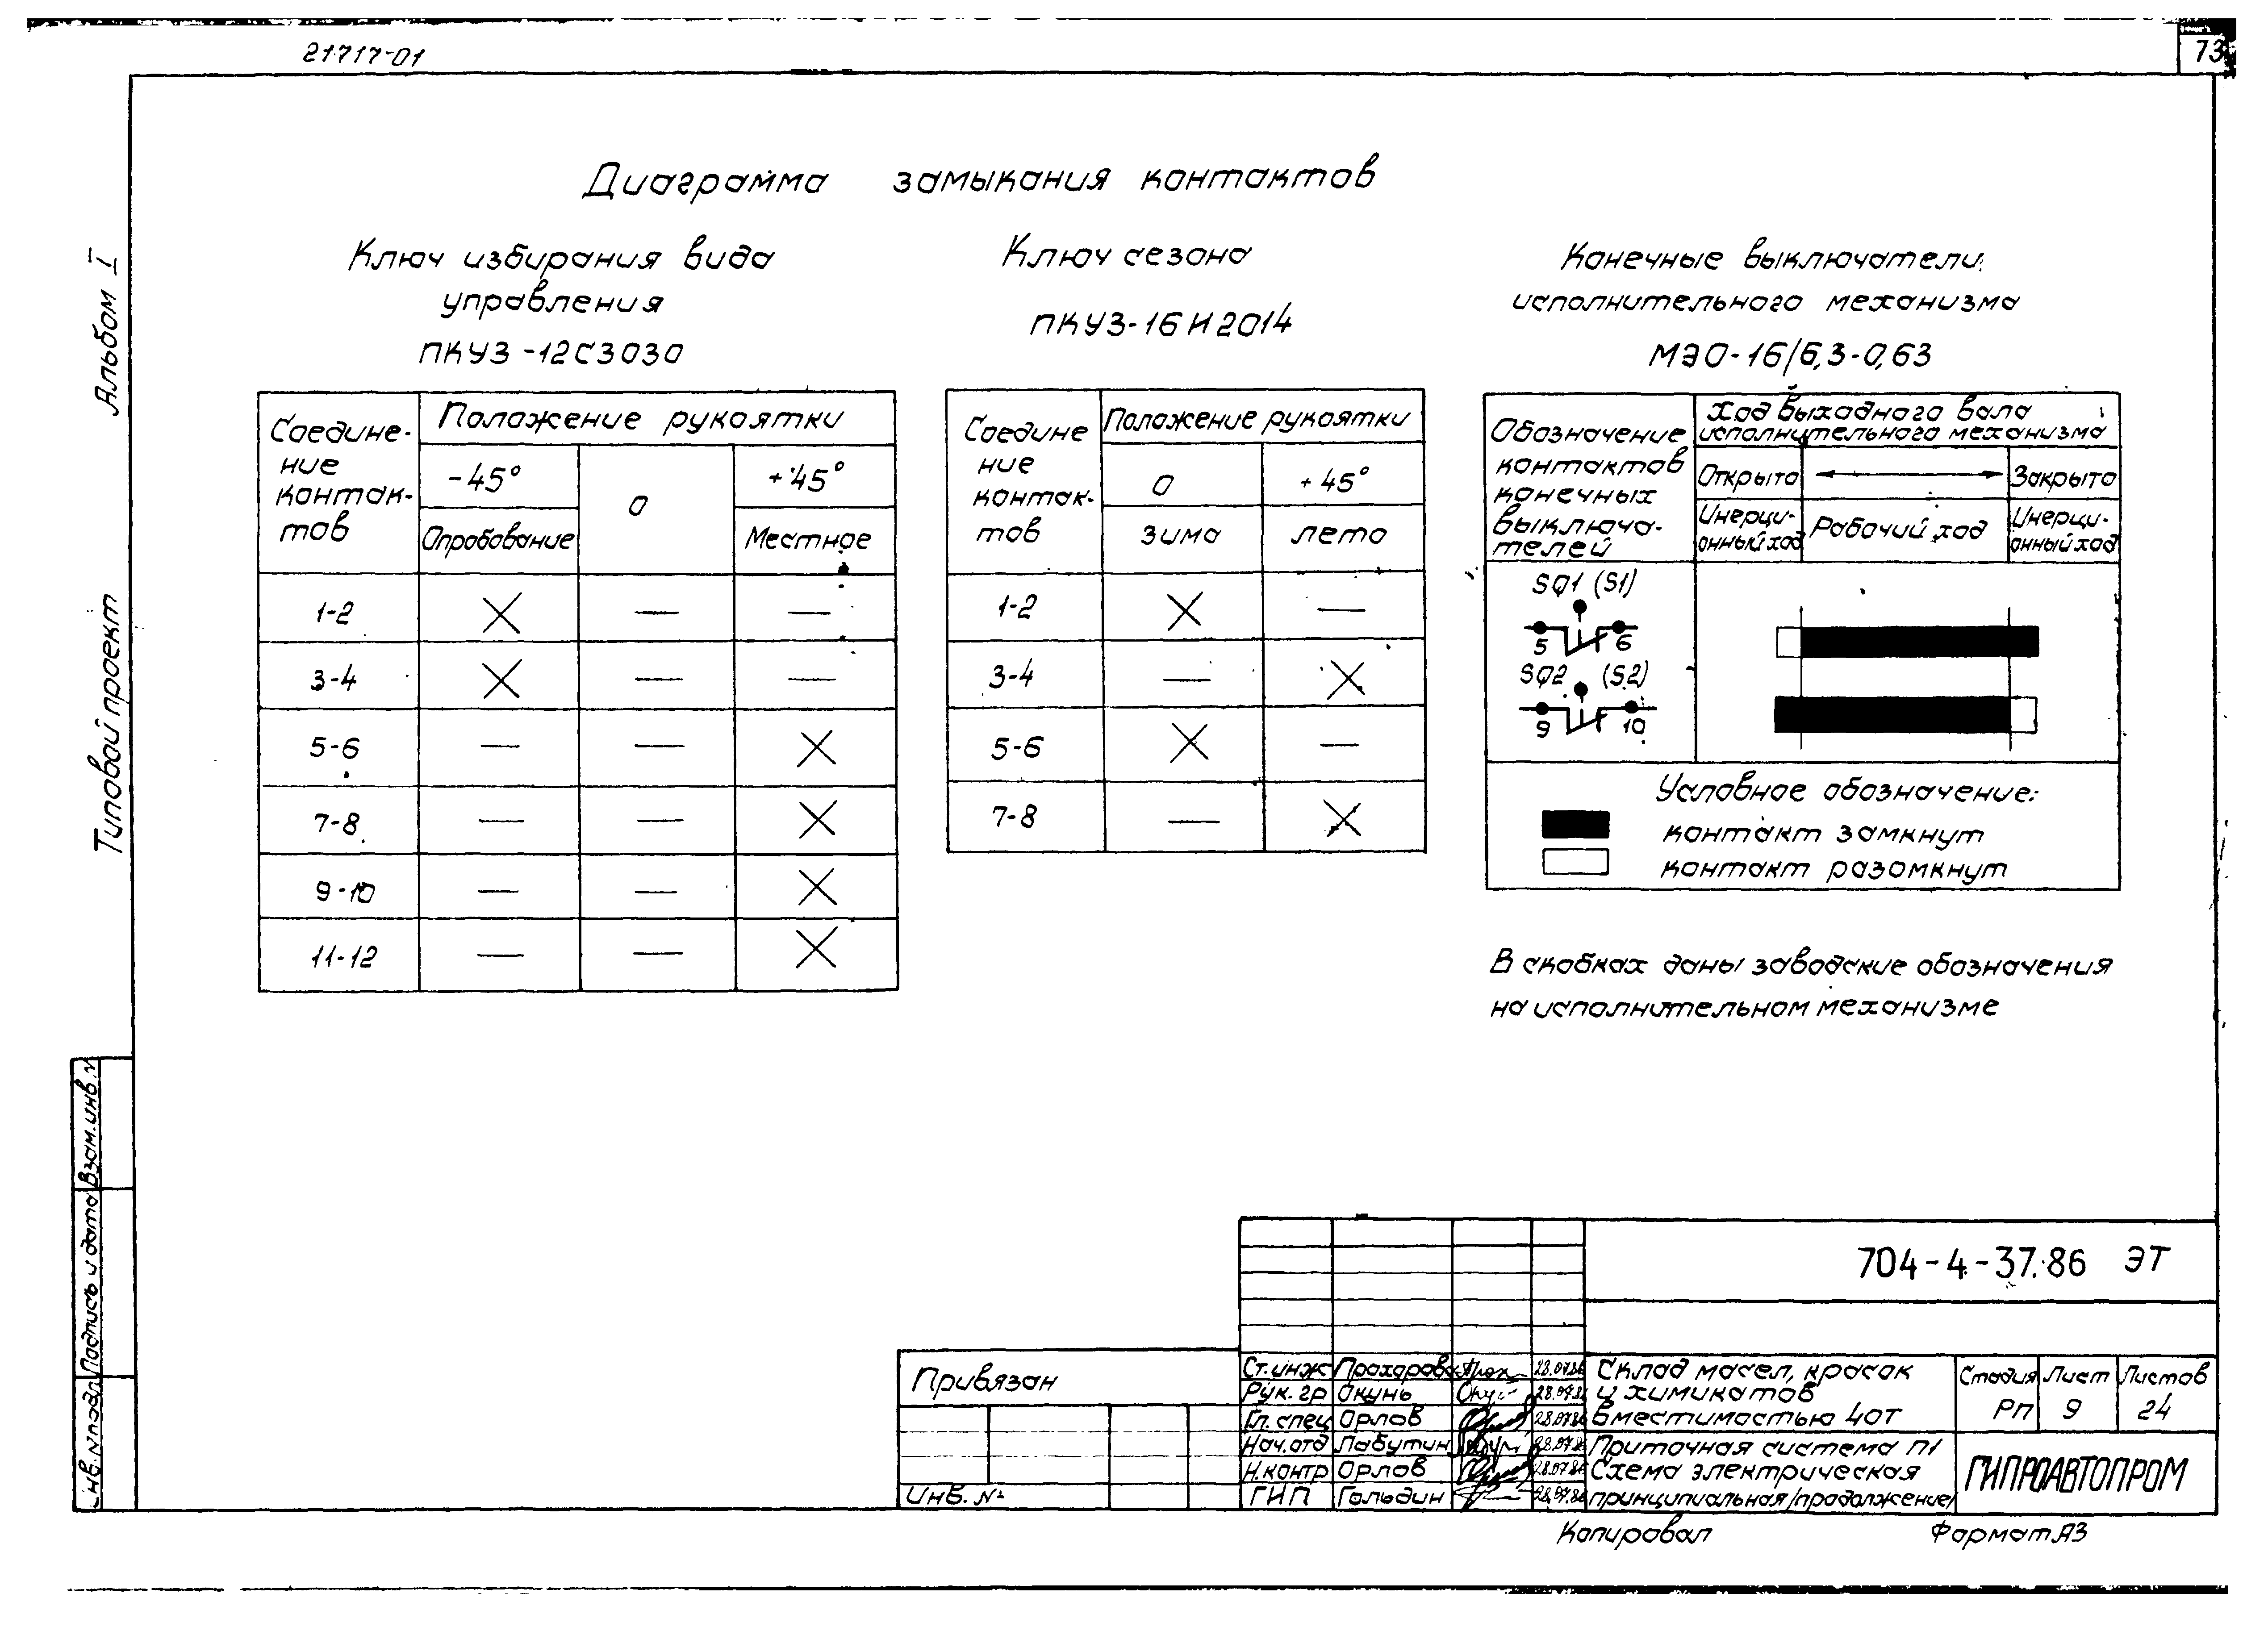 21717-01
73
Альбом I
Типовой проект
Диаграмма замыкания контактов
Ключ избирания вида
управления
ПКУ3-12С3030
Соедине-
ние
контак-
тов
Положение рукоятки
-45° 0 +45°
Опробование Местное
1-2 X — —
3-4 X — —
5-6 — — X
7-8 — — X
9-10 — — X
11-12 — — X
Ключ сезона
ПКУ3-16И2014
Соедине
ние
контак-
тов
Положение рукоятки
0 +45°
зима лето
1-2 X —
3-4 — X
5-6 X —
7-8 — X
Конечные выключатели
исполнительного механизма
МЭО-16/6,3-0,63
Обозначение
контактов
конечных
выключа-
телей
Ход выходного вала
исполнительного механизма
Открыто Закрыто
Инерци-
онный ход
Рабочий ход
Инерци-
онный ход
SQ1 (S1)
5 6
SQ2 (S2)
9 10
Условное обозначение:
контакт замкнут
контакт разомкнут
В скобках даны заводские обозначения
на исполнительном механизме
Взам. инв. №
Подпись и дата
Инв. № подл.
Привязан
Инв. №
704-4-37.86 ЭТ
Ст. инж Прохорова 28.07.86
Рук. гр Окунь 28.07.86
Гл. спец Орлов 28.07.86
Нач. отд Лабутин 28.07.86
Н. контр Орлов 28.07.86
ГИП Гольдин 28.07.86
Склад масел, красок
и химикатов
вместимостью 40т
Стадия Лист Листов
РП 9 24
Приточная система П1
Схема электрическая
принципиальная /продолжение/
ГИПРОАВТОПРОМ
Копировал
Формат А3